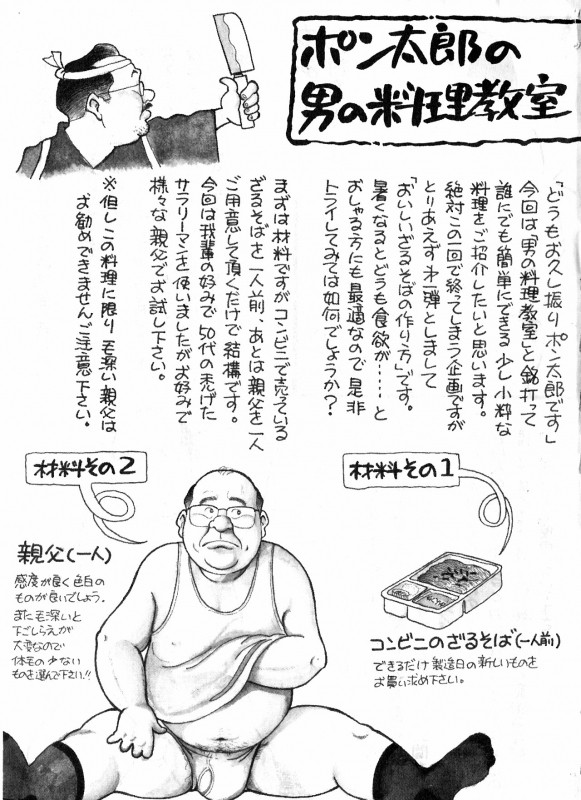 ポン太郎の
男の料理教室
「どうもお久し振りポン太郎です」
今回は「男の料理教室」と銘打って
誰にでも簡単にできる少し小粋な
料理をご紹介したいと思います。
絶対この一回で終ってしまう企画ですが
とりあえず才一弾としまして
「おいしいざるそばの作り方」です。
暑くなるとどうも食欲が……と
おしゃる方にも最適なので是非
トライしてみては如何でしょうか?
まずは材料ですがコンビニで売っている
ざるそばを一人前、あとは親父を一人
ご用意して頂くだけで結構です。
今回は我輩の好みで50代の禿げた
サラリーマンを使いましたがお好みで
様々な親父でお試し下さい。
※但しこの料理に限り毛深い親父は
お勧めできませんご注意下さい。
材料その1
コンビニのざるそば(一人前)
できるだけ製造日の新しいものを
お買い求め下さい。
材料その2
親父(一人)
感度が良く色白の
ものが良いでしょう。
まれに毛深いと
下ごしらえが
大変なので
体毛の少ない
ものを選んで下さい!!